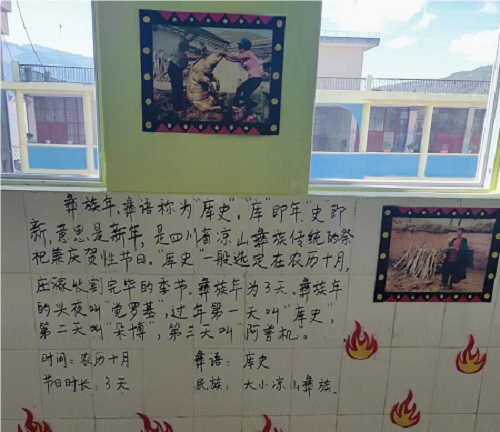 彝族年,彝语称为"库史","库"即年,"史"即
新,意思是新年,是四川省凉山彝族传统的祭
祀兼庆贺性节日。"库史"一般选定在农历十月,
庄稼收割完毕的季节。彝族年为3天。彝族年
的头夜叫"觉罗基",过年第一天叫"库史",
第二天叫"朵博",第三天叫"阿普机。
时间:农历十月 彝语:库史
节日时长:3天 民族:大小凉山彝族.